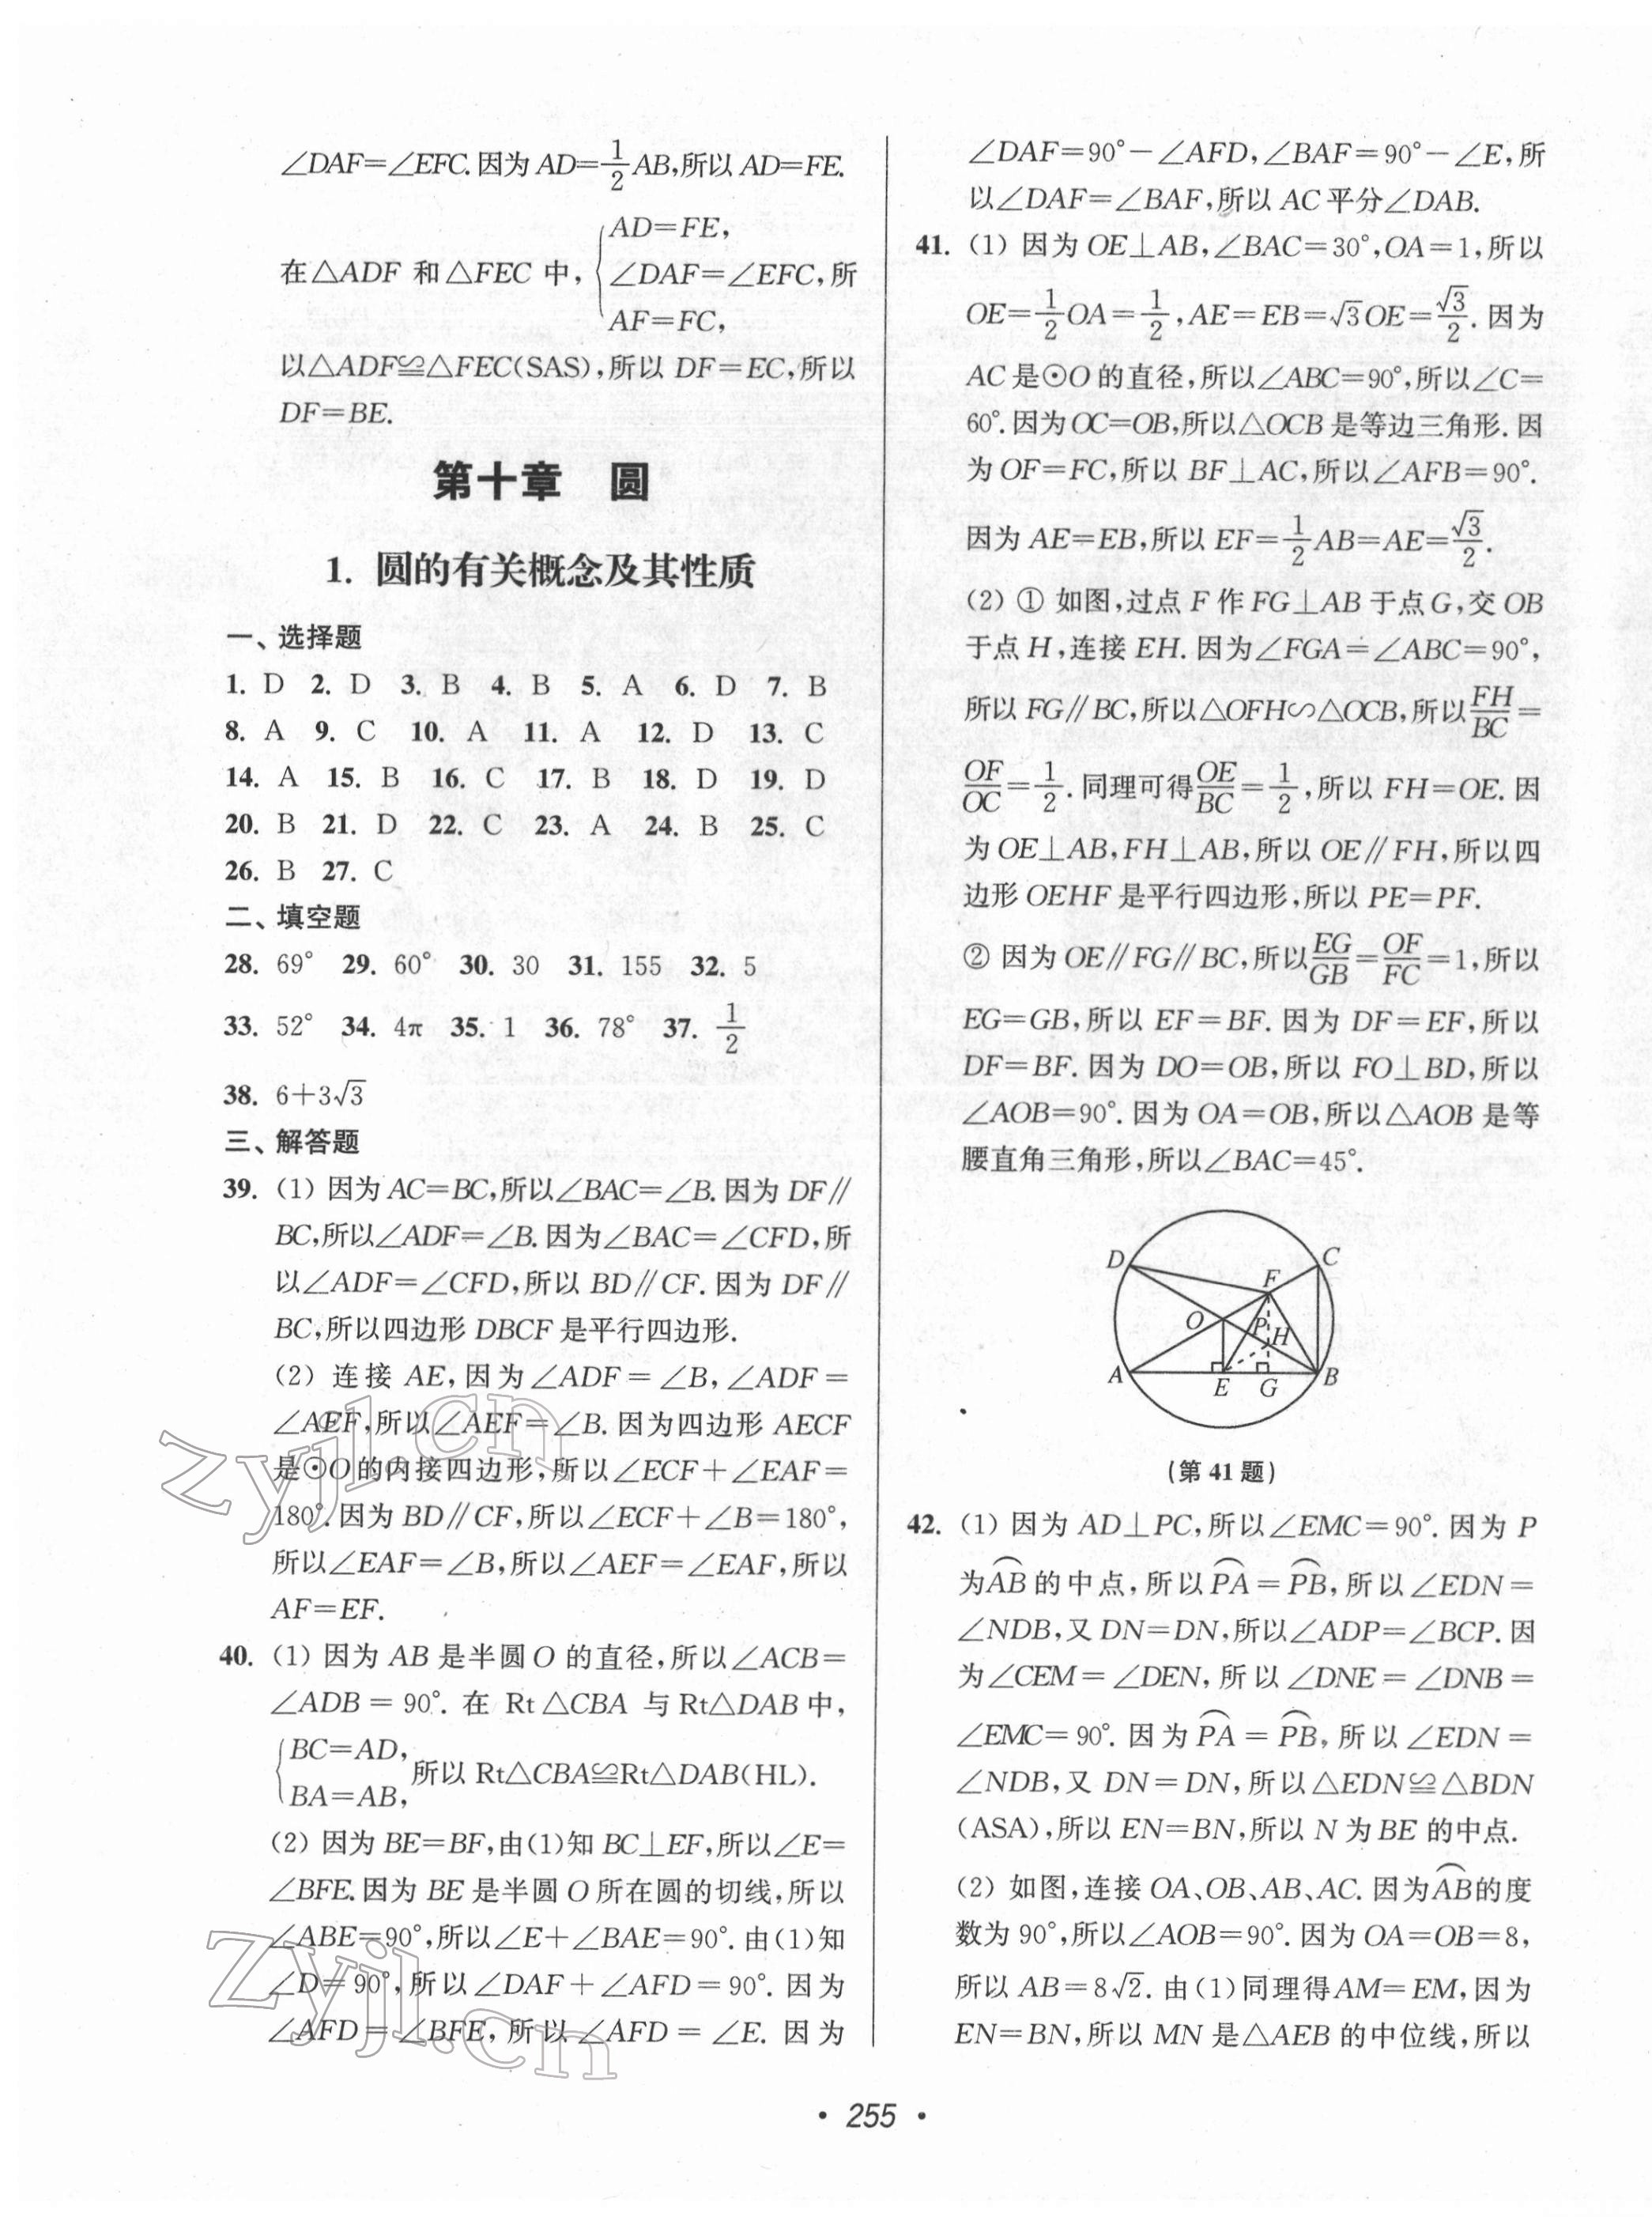 ∠DAF=∠EFC.因为AD=1/2AB,所以AD=FE.
在△ADF和△FEC中,{AD=FE,
∠DAF=∠EFC,所
AF=FC,
以△ADF≌△FEC(SAS),所以DF=EC,所以
DF=BE.
第十章 圆
1. 圆的有关概念及其性质
一、选择题
1. D 2. D 3. B 4. B 5. A 6. D 7. B
8. A 9. C 10. A 11. A 12. D 13. C
14. A 15. B 16. C 17. B 18. D 19. D
20. B 21. D 22. C 23. A 24. B 25. C
26. B 27. C
二、填空题
28. 69° 29. 60° 30. 30 31. 155 32. 5
33. 52° 34. 4π 35. 1 36. 78° 37. 1/2
38. 6+3√3
三、解答题
39. (1) 因为AC=BC,所以∠BAC=∠B.因为DF∥
BC,所以∠ADF=∠B.因为∠BAC=∠CFD,所
以∠ADF=∠CFD,所以BD∥CF.因为DF∥
BC,所以四边形DBCF是平行四边形.
(2) 连接AE,因为∠ADF=∠B,∠ADF=
∠AEF,所以∠AEF=∠B.因为四边形AECF
是⊙O的内接四边形,所以∠ECF+∠EAF=
180°.因为BD∥CF,所以∠ECF+∠B=180°,
所以∠EAF=∠B,所以∠AEF=∠EAF,所以
AF=EF.
40. (1) 因为AB是半圆O的直径,所以∠ACB=
∠ADB=90°.在Rt△CBA与Rt△DAB中,
{BC=AD,
BA=AB,所以Rt△CBA≌Rt△DAB(HL).
(2) 因为BE=BF,由(1)知BC⊥EF,所以∠E=
∠BFE.因为BE是半圆O所在圆的切线,所以
∠ABE=90°,所以∠E+∠BAE=90°.由(1)知
∠D=90°,所以∠DAF+∠AFD=90°.因为
∠AFD=∠BFE,所以∠AFD=∠E.因为
∠DAF=90°-∠AFD,∠BAF=90°-∠E,所
以∠DAF=∠BAF,所以AC平分∠DAB.
41. (1) 因为OE⊥AB,∠BAC=30°,OA=1,所以
OE=1/2OA=1/2,AE=EB=√3OE=√3/2.因为
AC是⊙O的直径,所以∠ABC=90°,所以∠C=
60°.因为OC=OB,所以△OCB是等边三角形.因
为OF=FC,所以BF⊥AC,所以∠AFB=90°.
因为AE=EB,所以EF=1/2AB=AE=√3/2.
(2) ① 如图,过点F作FG⊥AB于点G,交OB
于点H,连接EH.因为∠FGA=∠ABC=90°,
所以FG∥BC,所以△OFH∽△OCB,所以FH/BC=
OF/OC=1/2.同理可得OE/BC=1/2,所以FH=OE.因
为OE⊥AB,FH⊥AB,所以OE∥FH,所以四
边形OEHF是平行四边形,所以PE=PF.
② 因为OE∥FG∥BC,所以EG/GB=OF/FC=1,所以
EG=GB,所以EF=BF.因为DF=EF,所以
DF=BF.因为DO=OB,所以FO⊥BD,所以
∠AOB=90°.因为OA=OB,所以△AOB是等
腰直角三角形,所以∠BAC=45°.
D C
F
O P H
A E G B
(第41题)
42. (1) 因为AD⊥PC,所以∠EMC=90°.因为P
为⌒AB的中点,所以⌒PA=⌒PB,所以∠EDN=
∠NDB,又DN=DN,所以∠ADP=∠BCP.因
为∠CEM=∠DEN,所以∠DNE=∠DNB=
∠EMC=90°.因为⌒PA=⌒PB,所以∠EDN=
∠NDB,又DN=DN,所以△EDN≌△BDN
(ASA),所以EN=BN,所以N为BE的中点.
(2) 如图,连接OA、OB、AB、AC.因为⌒AB的度
数为90°,所以∠AOB=90°.因为OA=OB=8,
所以AB=8√2.由(1)同理得AM=EM,因为
EN=BN,所以MN是△AEB的中位线,所以
zyjl.cn
zyjl.cn
· 255 ·